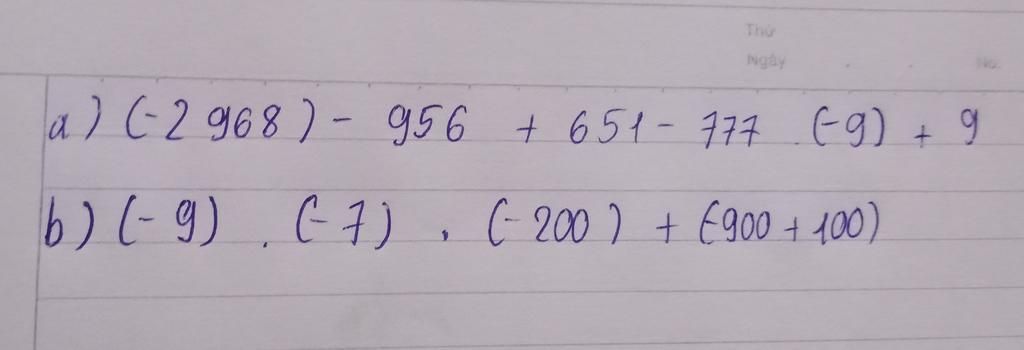 Thứ
Ngày . . No.
a) (-2 968) - 956 + 651 - 777 . (-9) + 9
b) (-9) . (-7) . (-200) + (-900 + 100)